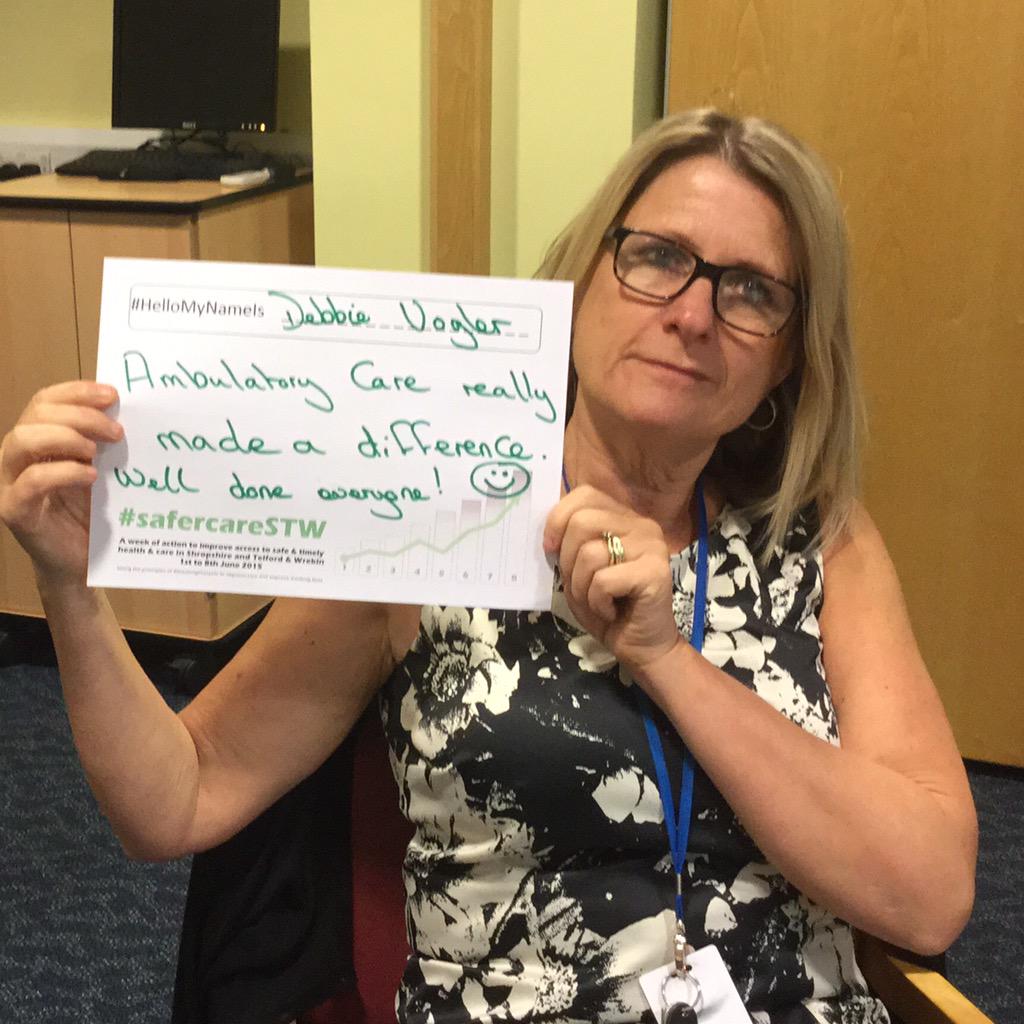 #HelloMyNameIs Debbie Vogler
Ambulatory Care really
made a difference.
Well done everyone!
#safercareSTW
A week of action to improve access to safe & timely
health & care in Shropshire and Telford & Wrekin
1st to 8th June 2015
1 2 3 4 5 6 7 8